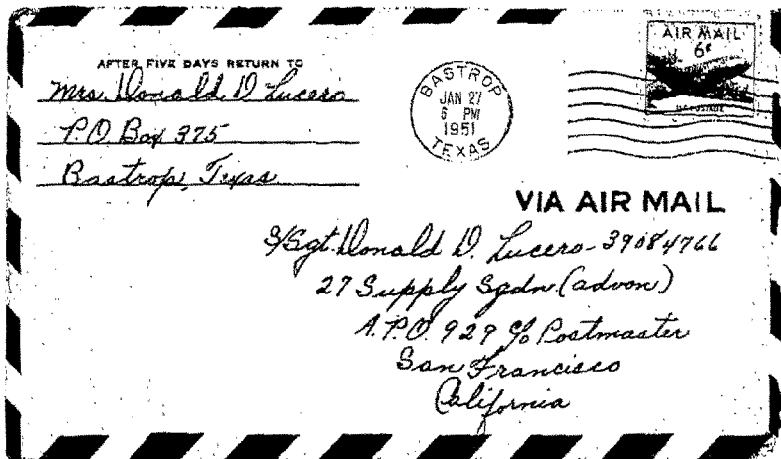 AFTER FIVE DAYS RETURN TO
Mrs. Donald D Lucero
P.O. Box 375
Bastrop, Texas
BASTROP
JAN 27
6 PM
1951
TEXAS
AIR MAIL
6¢
U.S. POSTAGE
VIA AIR MAIL
S/Sgt. Donald D. Lucero - 39084766
27 Supply Sqdn. (advon)
A.P.O. 929 c/o Postmaster
San Francisco
California